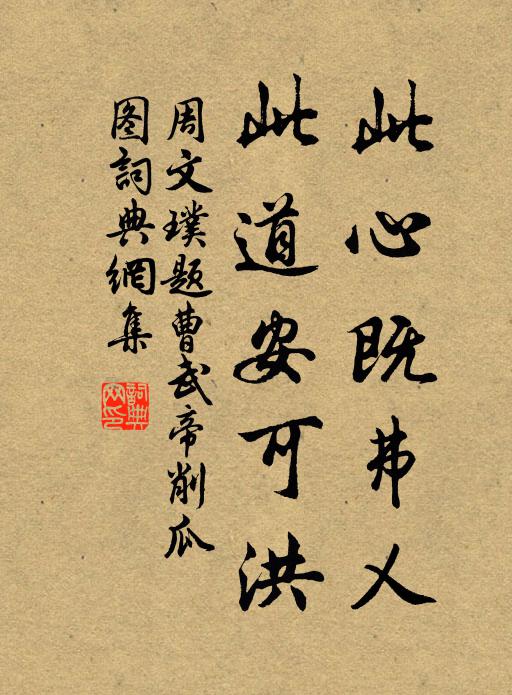 此心既弗乂
此道安可洪
周文璞题曹武帝削瓜
图詞典網集
詞典網印